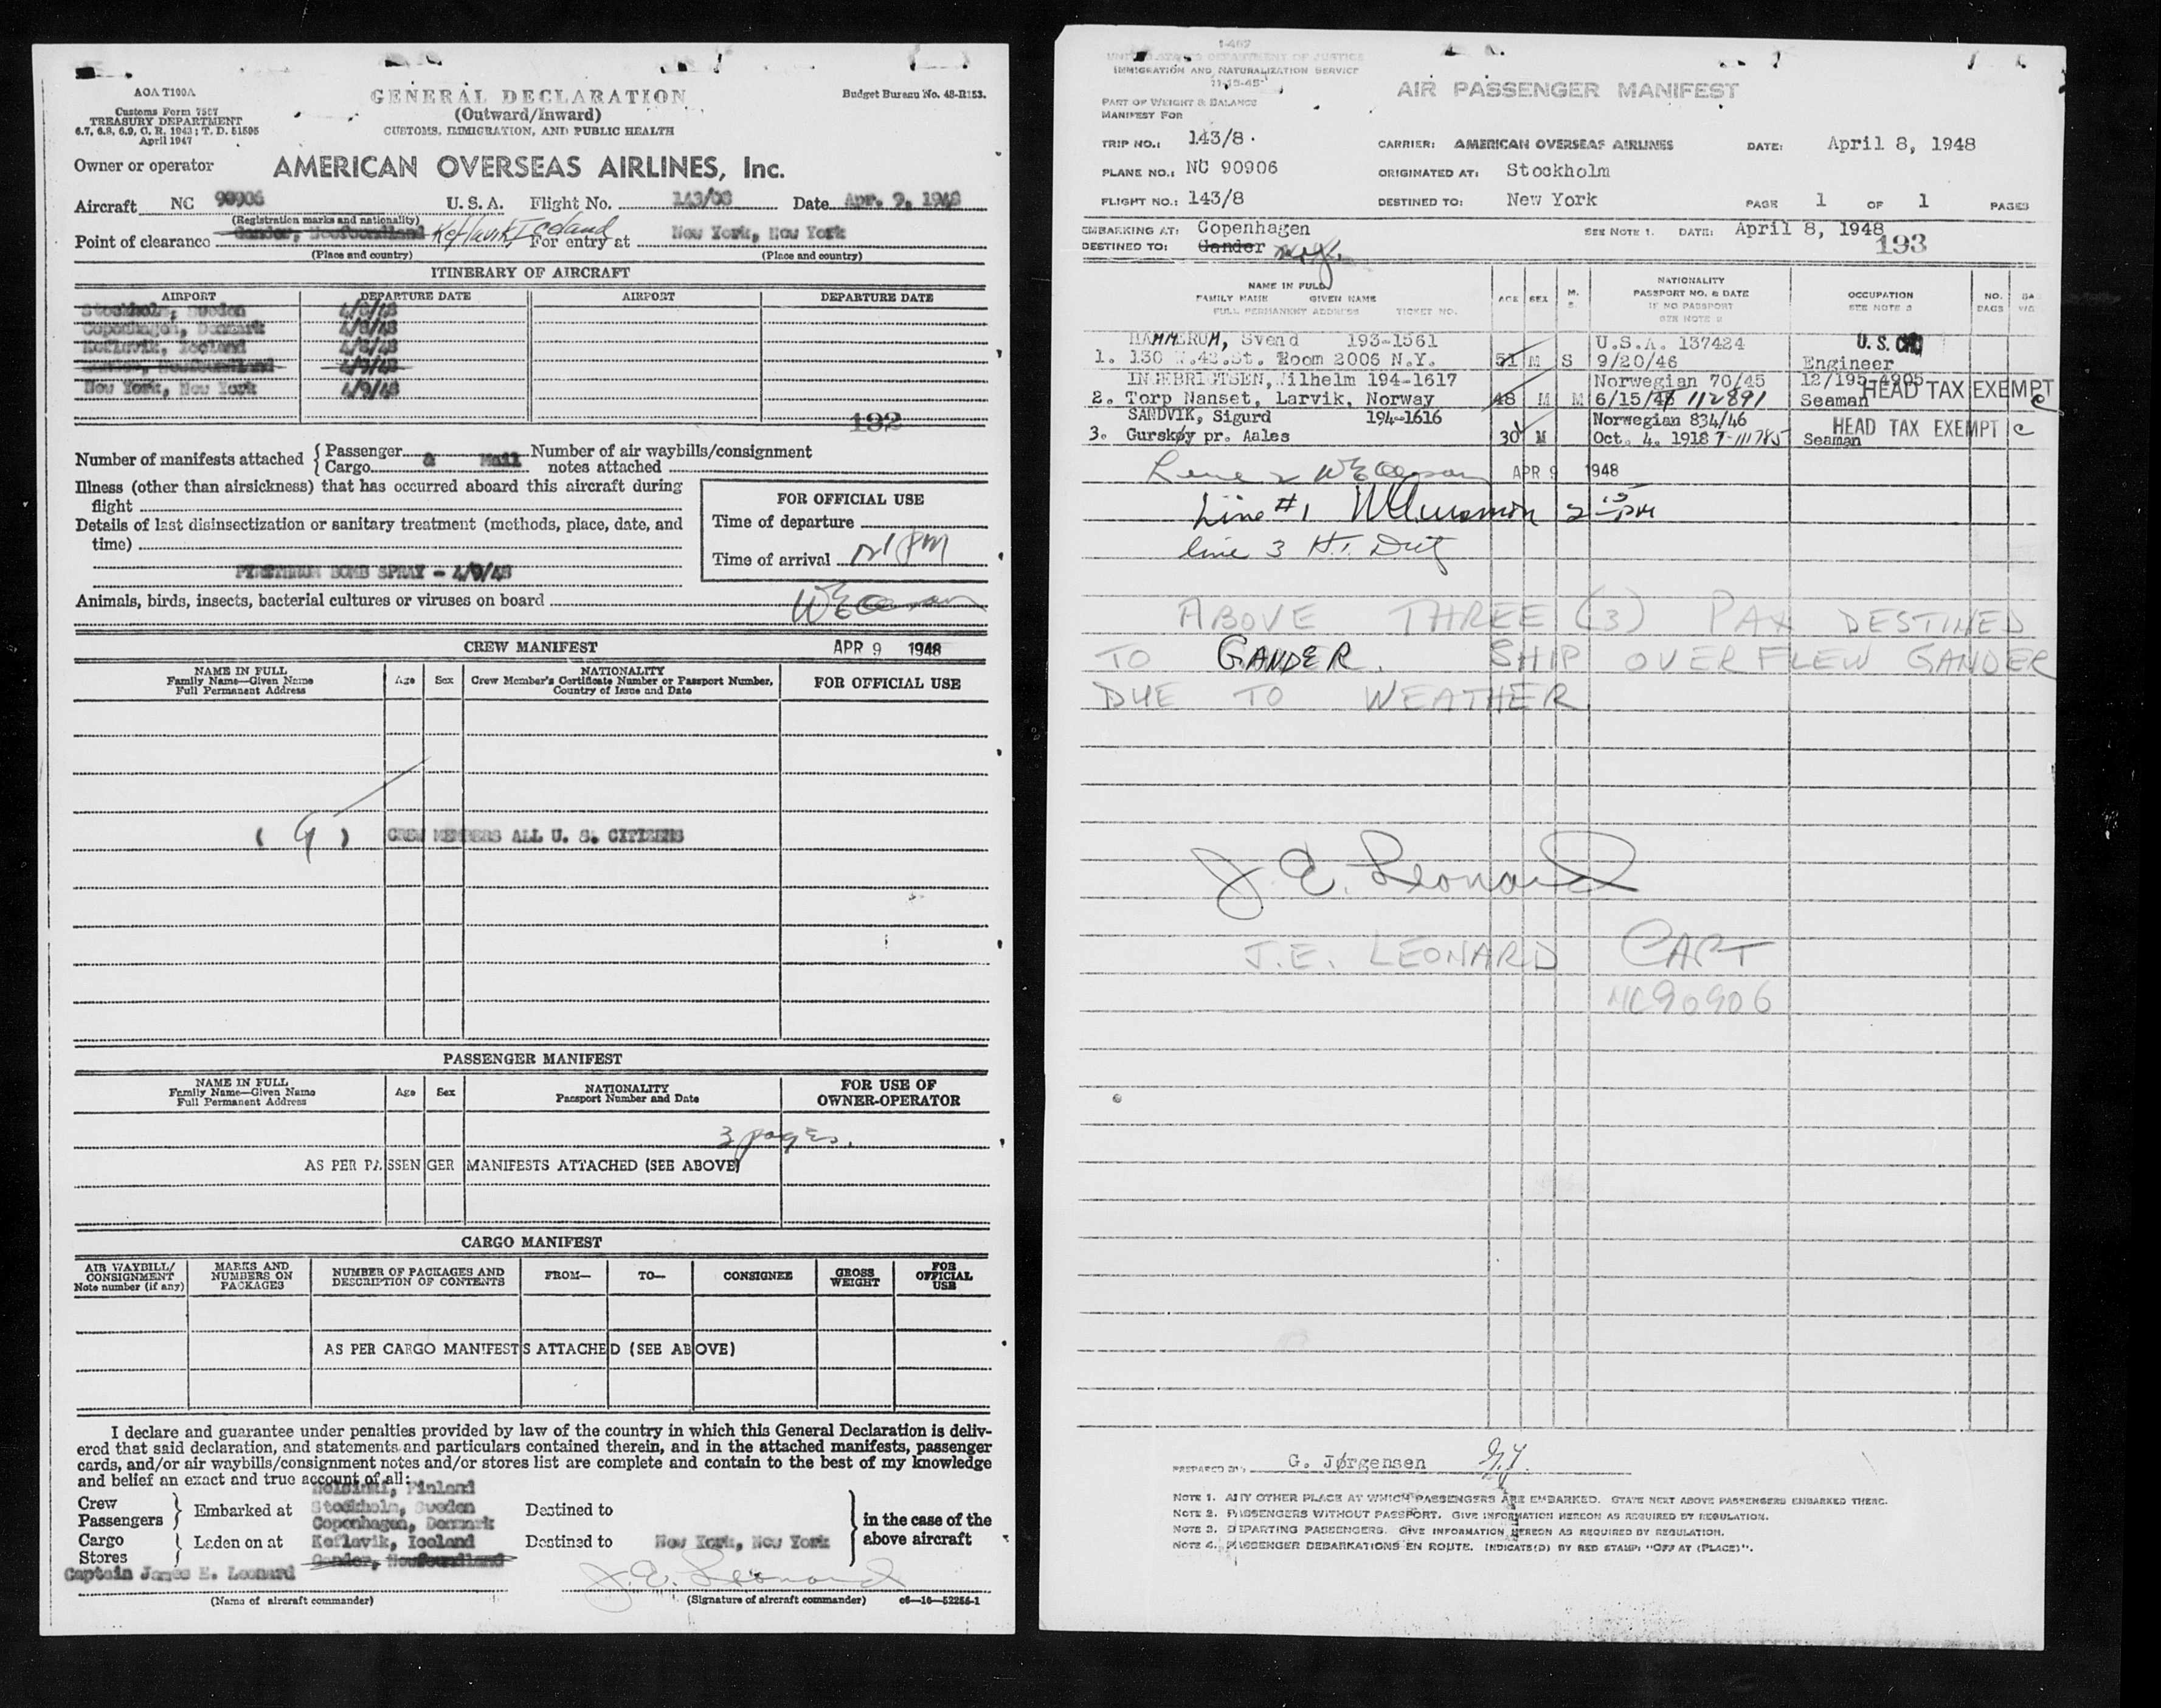 AOA T100A
Customs Form 7507
TREASURY DEPARTMENT
6.7, 6.8, 6.9, C. R. 1943; T. D. 51505
April 1947
GENERAL DECLARATION
(Outward/Inward)
CUSTOMS, IMMIGRATION, AND PUBLIC HEALTH
Budget Bureau No. 48-R153.
Owner or operator AMERICAN OVERSEAS AIRLINES, Inc.
Aircraft NC 90906 U. S. A. Flight No. 143/08 Date Apr. 9, 1948
(Registration marks and nationality)
Point of clearance Gander, Newfoundland Keflavik, Iceland For entry at New York, New York
(Place and country) (Place and country)
ITINERARY OF AIRCRAFT
AIRPORT DEPARTURE DATE AIRPORT DEPARTURE DATE
Stockholm, Sweden 4/8/48
Copenhagen, Denmark 4/8/48
Keflavik, Iceland 4/8/48
Gander, Newfoundland 4/9/48
New York, New York 4/9/48
192
Number of manifests attached { Passenger
Cargo & Mail
Number of air waybills/consignment
notes attached
Illness (other than airsickness) that has occurred aboard this aircraft during
flight
Details of last disinsectization or sanitary treatment (methods, place, date, and
time)
PYRETHRUM BOMB SPRAY - 4/9/48
FOR OFFICIAL USE
Time of departure
Time of arrival PM
Animals, birds, insects, bacterial cultures or viruses on board
CREW MANIFEST APR 9 1948
NAME IN FULL
Family Name—Given Name
Full Permanent Address
Age Sex
NATIONALITY
Crew Member's Certificate Number or Passport Number,
Country of Issue and Date
FOR OFFICIAL USE
( 9 ) CREW MEMBERS ALL U. S. CITIZENS
PASSENGER MANIFEST
NAME IN FULL
Family Name—Given Name
Full Permanent Address
Age Sex
NATIONALITY
Passport Number and Date
FOR USE OF
OWNER-OPERATOR
3 pages.
AS PER PASSENGER MANIFESTS ATTACHED (SEE ABOVE)
CARGO MANIFEST
AIR WAYBILL/
CONSIGNMENT
Note number (if any)
MARKS AND
NUMBERS ON
PACKAGES
NUMBER OF PACKAGES AND
DESCRIPTION OF CONTENTS
FROM— TO— CONSIGNEE
GROSS
WEIGHT
FOR
OFFICIAL
USE
AS PER CARGO MANIFESTS ATTACHED (SEE ABOVE)
I declare and guarantee under penalties provided by law of the country in which this General Declaration is deliv-
ered that said declaration, and statements and particulars contained therein, and in the attached manifests, passenger
cards, and/or air waybills/consignment notes and/or stores list are complete and contain to the best of my knowledge
and belief an exact and true account of all:
Helsinki, Finland
Crew
Passengers } Embarked at Stockholm, Sweden Destined to
Copenhagen, Denmark
Cargo
Stores } Laden on at Keflavik, Iceland Destined to New York, New York
Gander, Newfoundland
in the case of the
above aircraft
Captain James E. Leonard J. E. Leonard
(Name of aircraft commander) (Signature of aircraft commander) c6—16—52255-1
1-467
UNITED STATES DEPARTMENT OF JUSTICE
IMMIGRATION AND NATURALIZATION SERVICE
11-15-45
PART OF WEIGHT & BALANCE
MANIFEST FOR
AIR PASSENGER MANIFEST
TRIP NO.: 143/8. CARRIER: AMERICAN OVERSEAS AIRLINES DATE: April 8, 1948
PLANE NO.: NC 90906 ORIGINATED AT: Stockholm
FLIGHT NO.: 143/8 DESTINED TO: New York PAGE 1 OF 1 PAGES
EMBARKING AT: Copenhagen SEE NOTE 1. DATE: April 8, 1948
DESTINED TO: Gander
193
NAME IN FULL
FAMILY NAME GIVEN NAME
FULL PERMANENT ADDRESS TICKET NO.
AGE SEX M. S.
NATIONALITY
PASSPORT NO. & DATE
IF NO PASSPORT
SEE NOTE 2
OCCUPATION
SEE NOTE 3
NO.
BAGS
HAMMERUM, Svend 193-1561 U.S.A. 137424 U. S. CIT
1. 130 W.42.St. Room 2006 N.Y. 51 M S 9/20/46 Engineer
INGEBRIGTSEN, Wilhelm 194-1617 Norwegian 70/45 12/195-4905 HEAD TAX EXEMPT
2. Torp Nanset, Larvik, Norway 48 M M 6/15/45 112891 Seaman
SANDVIK, Sigurd 194-1616 Norwegian 834/46 HEAD TAX EXEMPT
3. Gurskøy pr. Aales 30 M Oct. 4. 1918 T-111785 Seaman
Line 2 APR 9 1948
Line #1 2 15 PM
line 3
ABOVE THREE (3) PAX DESTINED
TO GANDER. SHIP OVERFLEW GANDER
DUE TO WEATHER
J. E. Leonard
J.E. LEONARD CAPT
NC90906
PREPARED BY: G. Jørgensen
NOTE 1. ANY OTHER PLACE AT WHICH PASSENGERS ARE EMBARKED. STATE NEXT ABOVE PASSENGERS EMBARKED THERE.
NOTE 2. PASSENGERS WITHOUT PASSPORT. GIVE INFORMATION HEREON AS REQUIRED BY REGULATION.
NOTE 3. DEPARTING PASSENGERS. GIVE INFORMATION HEREON AS REQUIRED BY REGULATION.
NOTE 4. PASSENGER DEBARKATIONS EN ROUTE. INDICATE(D) BY RED STAMP: "OFF AT (PLACE)".